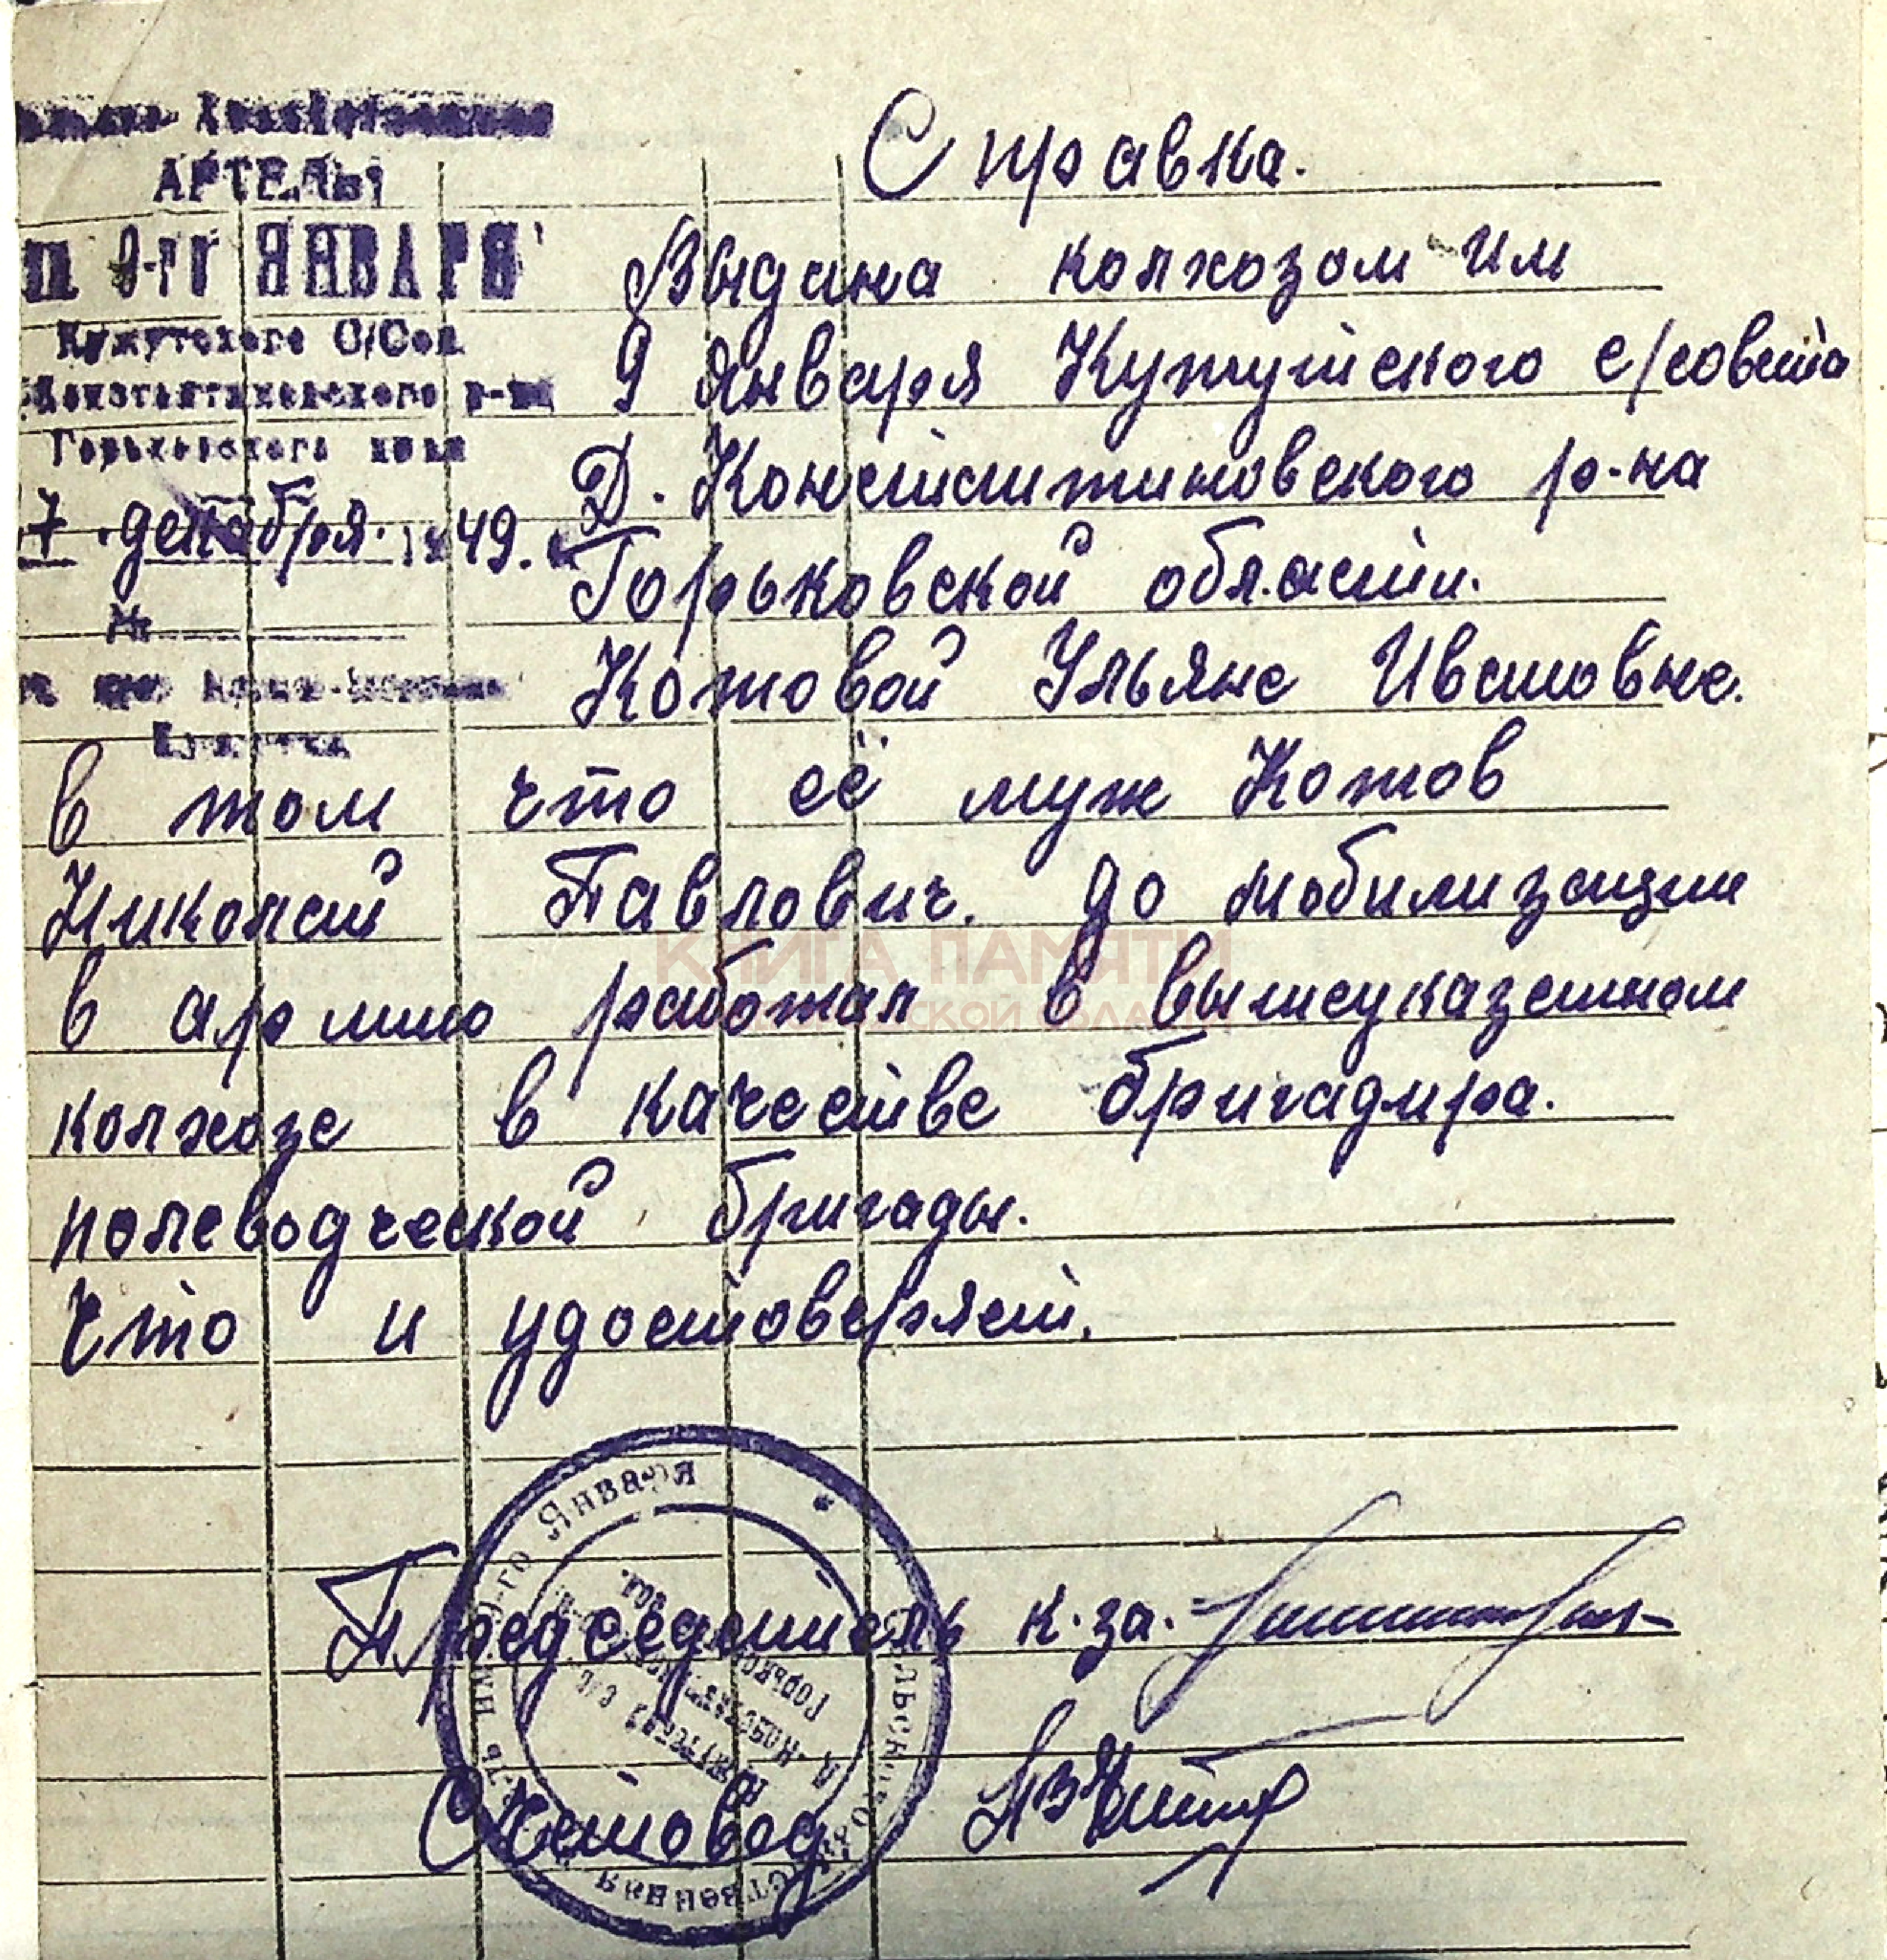 АРТЕЛЬ
9-го ЯНВАРЯ
Кужутского С/Сов
Константиновского р-на
Горьковского края
7 декабря. 1949.
№
Справка.
Выдана колхозом им
9 Января Кужутского с/совета
Д. Константиновского р-на
Горьковской области.
Котовой Ульяне Ивановне.
в том что её муж Котов
Николай Павлович. до мобилизации
в армию работал в вышеуказанном
колхозе в качестве бригадира.
полеводческой бригады.
Что и удостоверяет.
Председатель к-за.
Счетовод
им 9-го Января
сельскохозяйственная
КНИГА ПАМЯТИ
ОБЛАСТИ